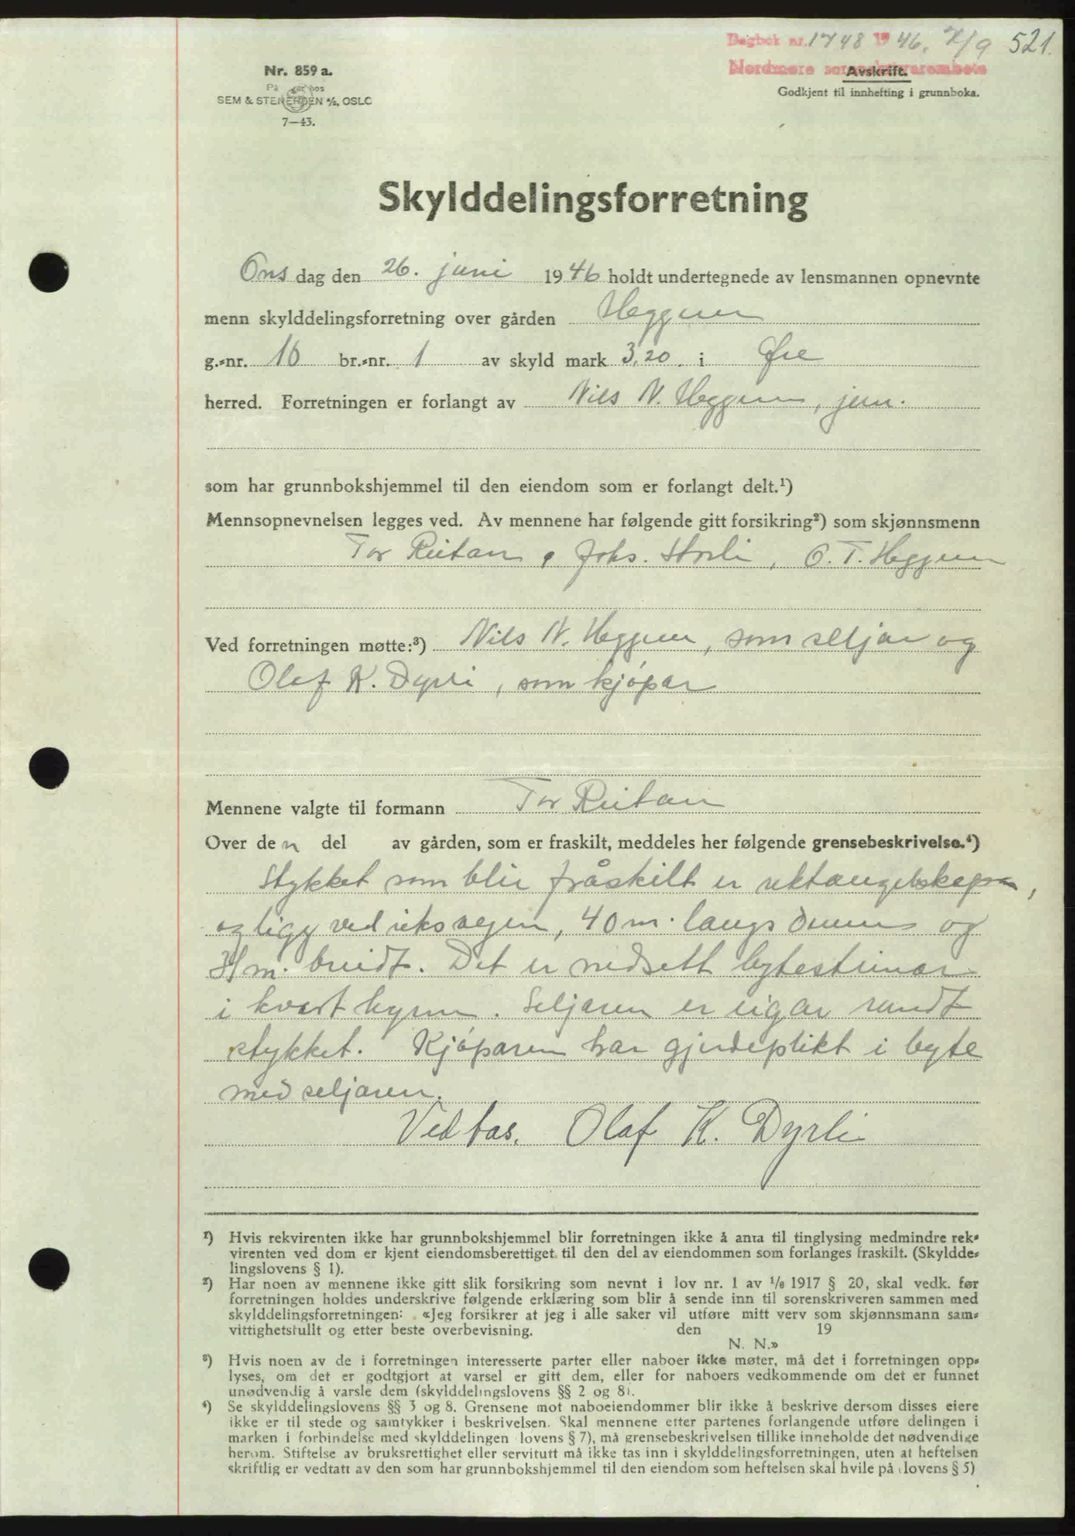 Dagbok nr. 1748 1946. 7/9 521.
Nordmøre sorenskriverembete
Nr. 859 a.
Avskrift.
På lager hos
SEM & STENERSEN A/S, OSLO
Godkjent til innhefting i grunnboka.
7—43.
Skylddelingsforretning
Onsdag den 26. juni 1946 holdt undertegnede av lensmannen opnevnte
menn skylddelingsforretning over gården Heggem
g.-nr. 16 br.-nr. 1 av skyld mark 3,20 i Øre
herred. Forretningen er forlangt av Nils N. Heggem, jun.
som har grunnbokshjemmel til den eiendom som er forlangt delt.¹)
Mennsopnevnelsen legges ved. Av mennene har følgende gitt forsikring²) som skjønnsmenn
Tor Reitan, Johs. Storli, O. T. Heggem
Ved forretningen møtte:³) Nils N. Heggem, som seljar og
Olaf K. Dyrli, som kjøpar
Mennene valgte til formann Tor Reitan
Over den del av gården, som er fraskilt, meddeles her følgende grensebeskrivelse.⁴)
Stykket som blir fråskilt er rektangelskapa,
og ligg ved riksvegen, 40 m. langs denne og
31 m. breidt. Det er nedsett bytesteinar
i kvart hyrne. Seljaren er eigar rundt
stykket. Kjøparen har gjerdeplikt i byte
med seljaren.
Vedtas. Olaf K. Dyrli
¹) Hvis rekvirenten ikke har grunnbokshjemmel blir forretningen ikke å anta til tinglysing medmindre rek-
virenten ved dom er kjent eiendomsberettiget til den del av eiendommen som forlanges fraskilt. (Skyldde-
lingslovens § 1).
²) Har noen av mennene ikke gitt slik forsikring som nevnt i lov nr. 1 av 1/6 1917 § 20, skal vedk. før
forretningen holdes underskrive følgende erklæring som blir å sende inn til sorenskriveren sammen med
skylddelingsforretningen: «Jeg forsikrer at jeg i alle saker vil utføre mitt verv som skjønnsmann sam-
vittighetsfullt og etter beste overbevisning. den 19
N. N.»
³) Hvis noen av de i forretningen interesserte parter eller naboer ikke møter, må det i forretningen opp-
lyses, om det er godtgjort at varsel er gitt dem, eller for naboers vedkommende om det er funnet
unødvendig å varsle dem (skylddelingslovens §§ 2 og 8).
⁴) Se skylddelingslovens §§ 3 og 8. Grensene mot naboeiendommer blir ikke å beskrive dersom disses eiere
ikke er til stede og samtykker i beskrivelsen. Skal mennene etter partenes forlangende utføre delingen i
marken i forbindelse med skylddelingen (lovens § 7), må grensebeskrivelsen tillike inneholde det nødvendige
herom. Stiftelse av bruksrettighet eller servitutt må ikke tas inn i skylddelingsforretningen, uten at heftelsen
skriftlig er vedtatt av den som har grunnbokshjemmel til den eiendom som heftelsen skal hvile på (lovens § 5)